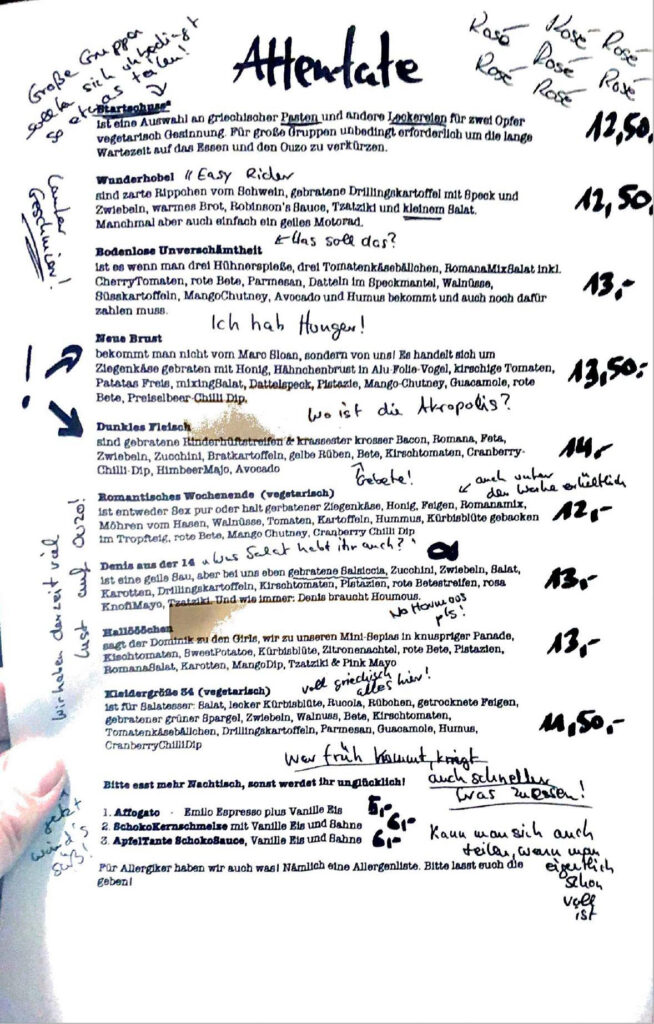 Große Gruppen
sollten sich unbedingt
so etwas teilen!
Attentate
Rosé Rosé Rosé
Rosé Rosé Rosé
Rosé Rosé
Startschuss
ist eine Auswahl an griechischer Pasten und andere Leckereien für zwei Opfer
vegetarisch Gesinnung. Für große Gruppen unbedingt erforderlich um die lange
Wartezeit auf das Essen und den Ouzo zu verkürzen.
12,50,
Wunderhobel "Easy Rider
sind zarte Rippchen vom Schwein, gebratene Drillingskartoffel mit Speck und
Zwiebeln, warmes Brot, Robinson's Sauce, Tzatziki und kleinem Salat.
Manchmal aber auch einfach ein geiles Motorad.
12,50,
Geschmier!
← Was soll das?
Bodenlose Unverschämtheit
ist es wenn man drei Hühnerspieße, drei Tomatenkäsebällchen, RomanaMixSalat inkl.
CherryTomaten, rote Bete, Parmesan, Datteln im Speckmantel, Walnüsse,
Süsskartoffeln, MangoChutney, Avocado und Humus bekommt und auch noch dafür
zahlen muss.
13,-
Ich hab Hunger!
Neue Brust
bekommt man nicht vom Marc Sloan, sondern von uns! Es handelt sich um
Ziegenkäse gebraten mit Honig, Hähnchenbrust in Alu-Folie-Vogel, kirschige Tomaten,
Patatas Freis, mixingSalat, Dattelspeck, Pistazie, Mango-Chutney, Guacamole, rote
Bete, Preiselbeer-Chilli Dip.
13,50,-
!
Wo ist die Akropolis?
Dunkles Fleisch
sind gebratene Rinderhüftstreifen & krassester krosser Bacon, Romana, Feta,
Zwiebeln, Zucchini, Bratkartoffeln, gelbe Rüben, Bete, Kirschtomaten, Cranberry-
Chilli-Dip, HimbeerMajo, Avocado
14,-
Gebete!
← auch unter
der Woche erhältlich
Romantisches Wochenende (vegetarisch)
ist entweder Sex pur oder halt gerbatener Ziegenkäse, Honig, Feigen, Romanamix,
Möhren vom Hasen, Walnüsse, Tomaten, Kartoffeln, Hummus, Kürbisblüte gebacken
im Tropfteig, rote Bete, Mango Chutney, Cranberry Chilli Dip
12,-
Wir haben derzeit viel
Lust auf Ouzo!
Denis aus der 14 "Was Salat habt ihr auch?"
ist eine geile Sau, aber bei uns eben gebratene Salsiccia, Zucchini, Zwiebeln, Salat,
Karotten, Drillingskartoffeln, Kirschtomaten, Pistazien, rote Betestreifen, rosa
KnofiMayo, Tzatziki. Und wie immer: Denis braucht Houmous.
13,-
No Houmoos
pls!
Hallöööchen
sagt der Dominik zu den Girls, wir zu unseren Mini-Sepias in knuspriger Panade,
Kischtomaten, SweetPotatoe, Kürbisblüte, Zitronenachtel, rote Bete, Pistazien,
RomanaSalat, Karotten, MangoDip, Tzatziki & Pink Mayo
13,-
voll griechisch
alles hier!
Kleidergröße 34 (vegetarisch)
ist für Salatesser: Salat, lecker Kürbisblüte, Rucola, Rübchen, getrocknete Feigen,
gebratener grüner Spargel, Zwiebeln, Walnuss, Bete, Kirschtomaten,
TomatenKäseBällchen, Drillingskartoffeln, Parmesan, Guacamole, Humus,
CranberryChilliDip
11,50,-
Wer früh kommt, kriegt
auch schneller
was zu essen!
Bitte esst mehr Nachtisch, sonst werdet ihr unglücklich!
1. Affogato - Emilio Espresso plus Vanille Eis 5,-
2. SchokoKernschmelze mit Vanille Eis und Sahne 6,-
3. ApfelTante SchokoSauce, Vanille Eis und Sahne 6,-
Jetzt
wird's
süß!
Kann man sich auch
teilen, wenn man
eigentlich
schon
voll
ist
Für Allergiker haben wir auch was! Nämlich eine Allergenliste. Bitte lasst euch die
geben!